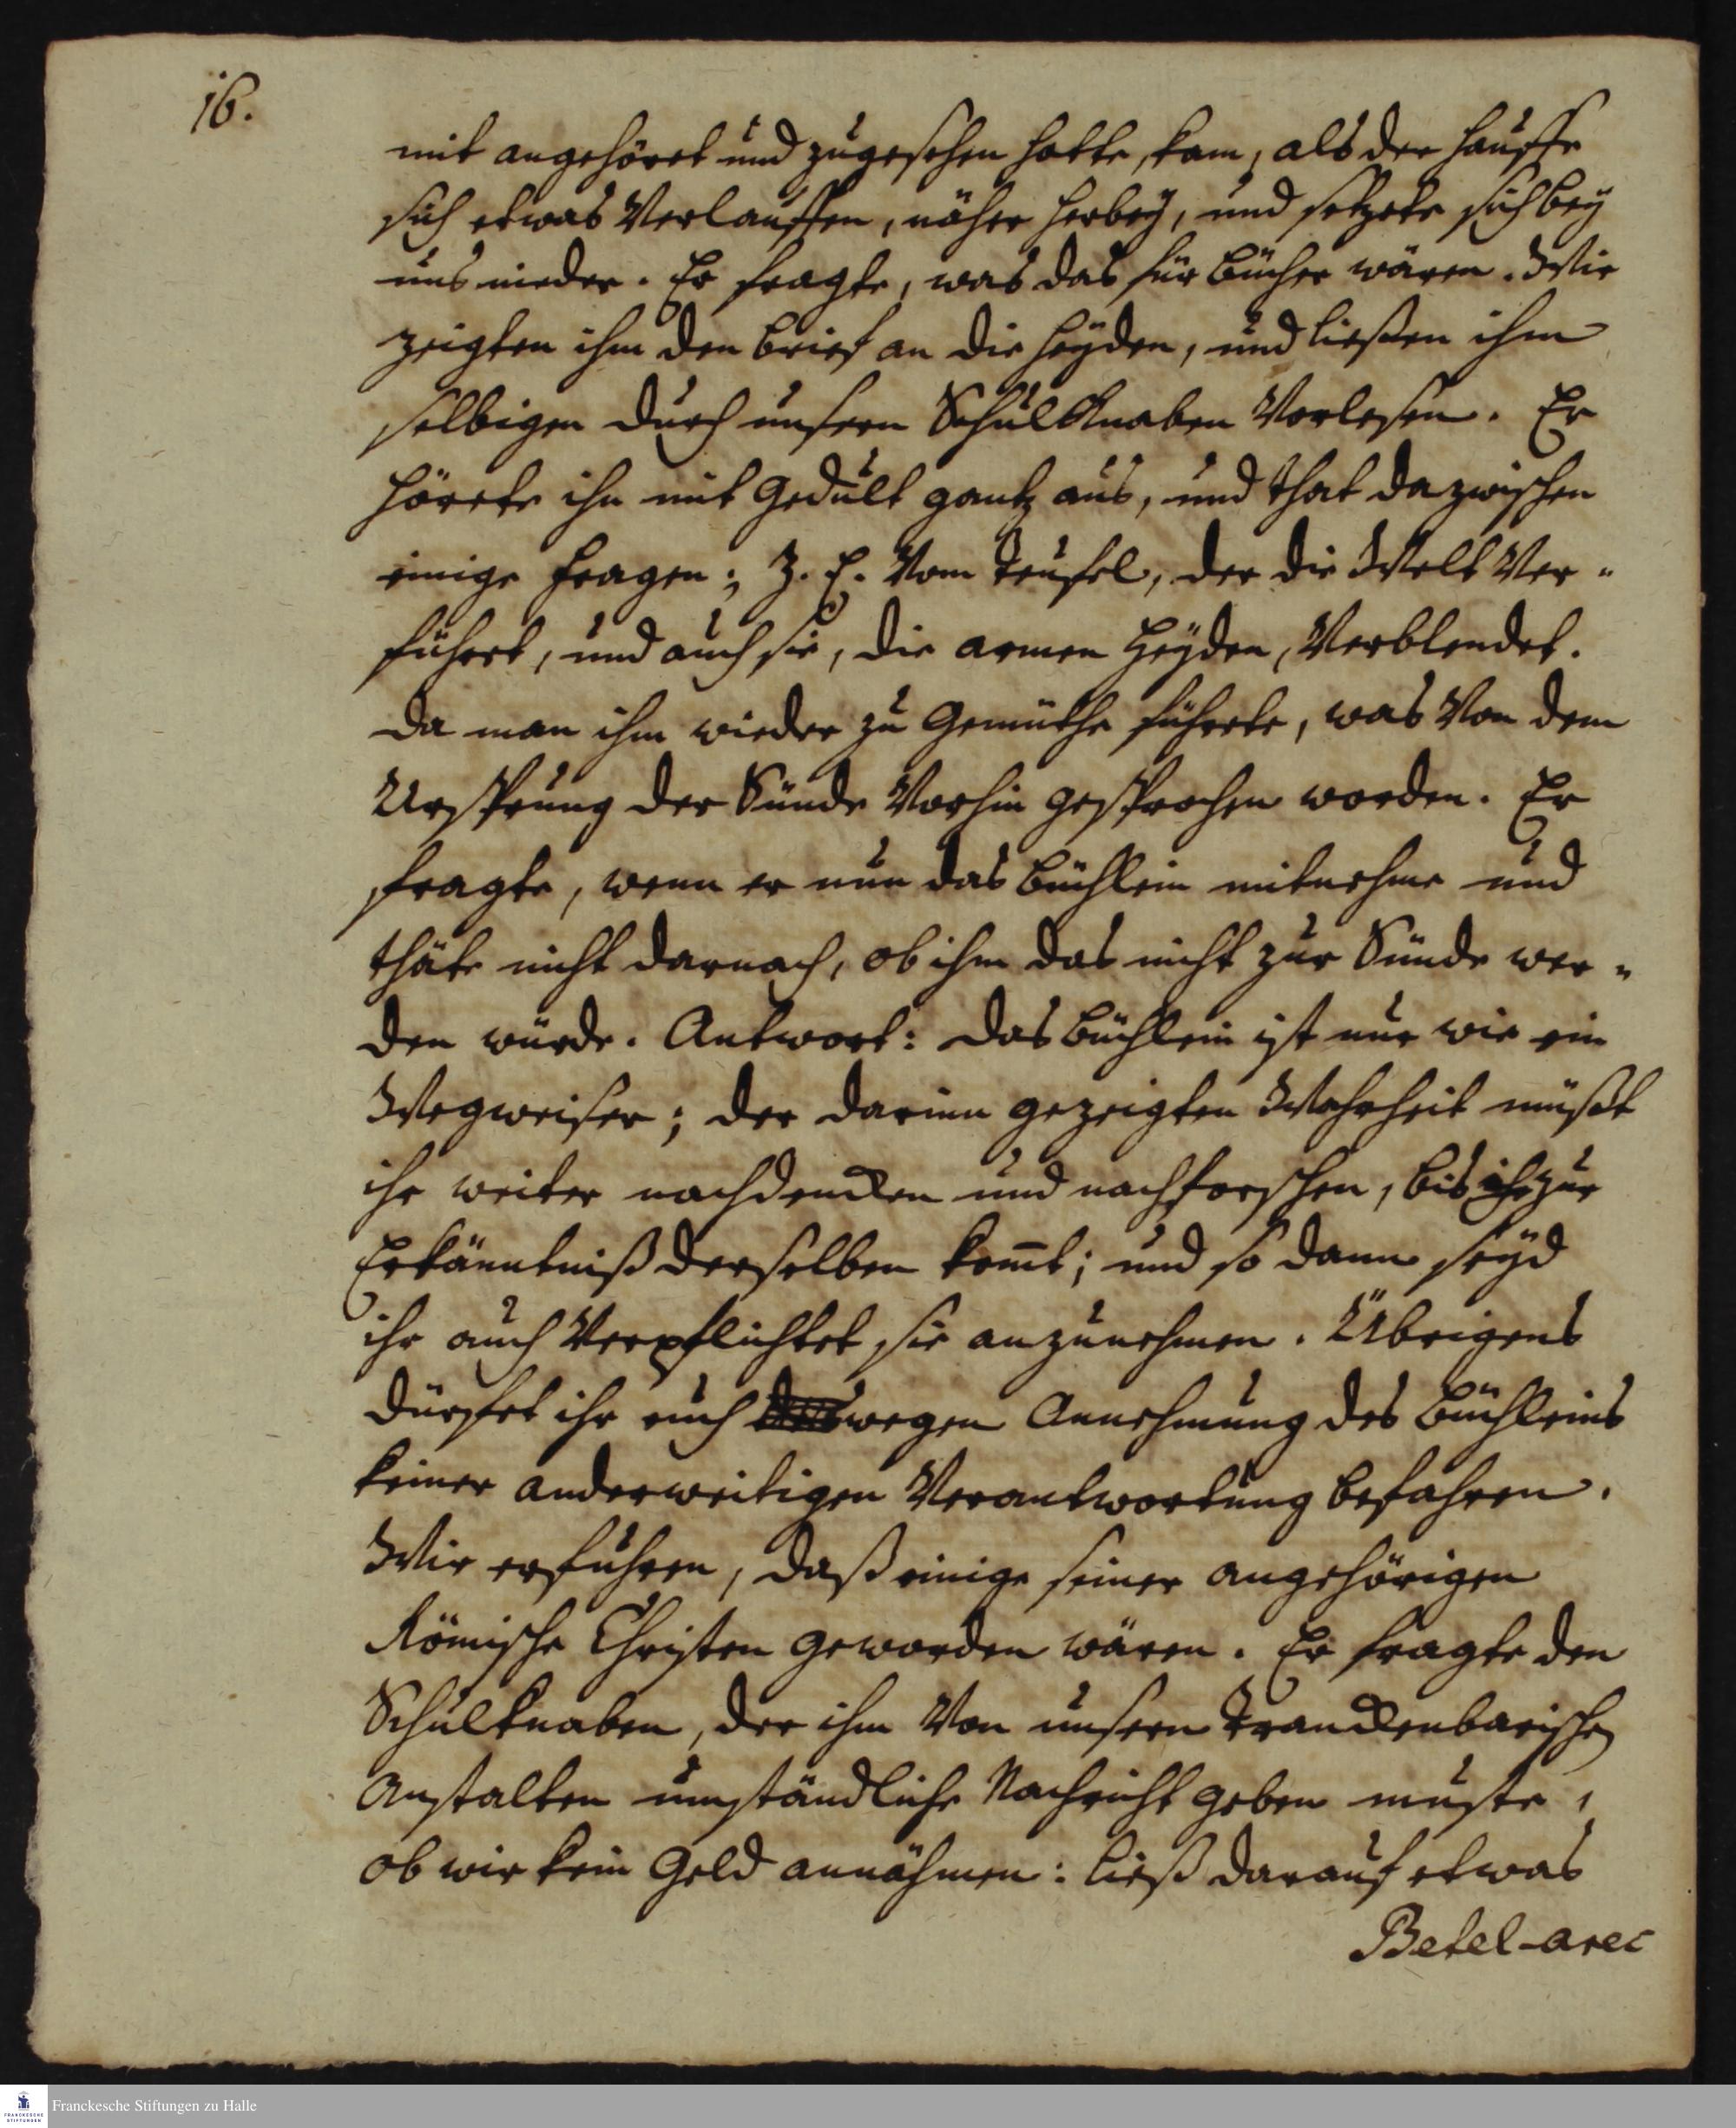 16.
mit angehöret und zugesehen hatte, kam, als der Hauffe
sich etwas Verlauffen, näher herbeÿ, und setzete sich beÿ
uns nieder. Er fragte, was das für Bücher wären. Wir
zeigten ihm den Brief an die Heÿden, und ließen ihm
selbigen durch unsern Schul Knaben Vorlesen. Er
hörete ihn mit Gedult gantz aus, und that dazwischen
einige Fragen; Z. E. Vom Teufel, der die Welt Ver-
führet, und auch sie, die armen Heÿden, Verblendet.
Da man ihm wieder zu Gemüthe führete, was Von dem
Ursprung der Sünde Vorhin gesprochen worden. Er
fragte, wenn er nun das Büchlein mitnehme und
thäte nicht darnach, ob ihm das nicht zur Sünde wer-
den würde. Antwort: Das Büchlein ist nur wie ein
Wegweiser; der darinn gezeigten Wahrheit müßt
ihr weiter nachdencken und nachforschen, bis ihr zur
Erkänntniß derselben kom̄t; und so dann seÿd
ihr auch Verpflichtet sie anzunehmen. Übrigens
dürfet ihr euch wegen Annehmung des Büchleins
keiner anderweitigen Verantwortung befahren.
Wir erfuhren, daß einige seiner angehörigen
Römische Christen geworden wären. Er fragte den
Schulknaben, der ihm Von unsern Tranckenbarischen
Anstalten umständliche Nachricht geben muste,
ob wir kein Geld annähmen: ließ darauf etwas
Betel-arec
Franckesche Stiftungen zu Halle
FRANCKESCHE
STIFTUNGEN